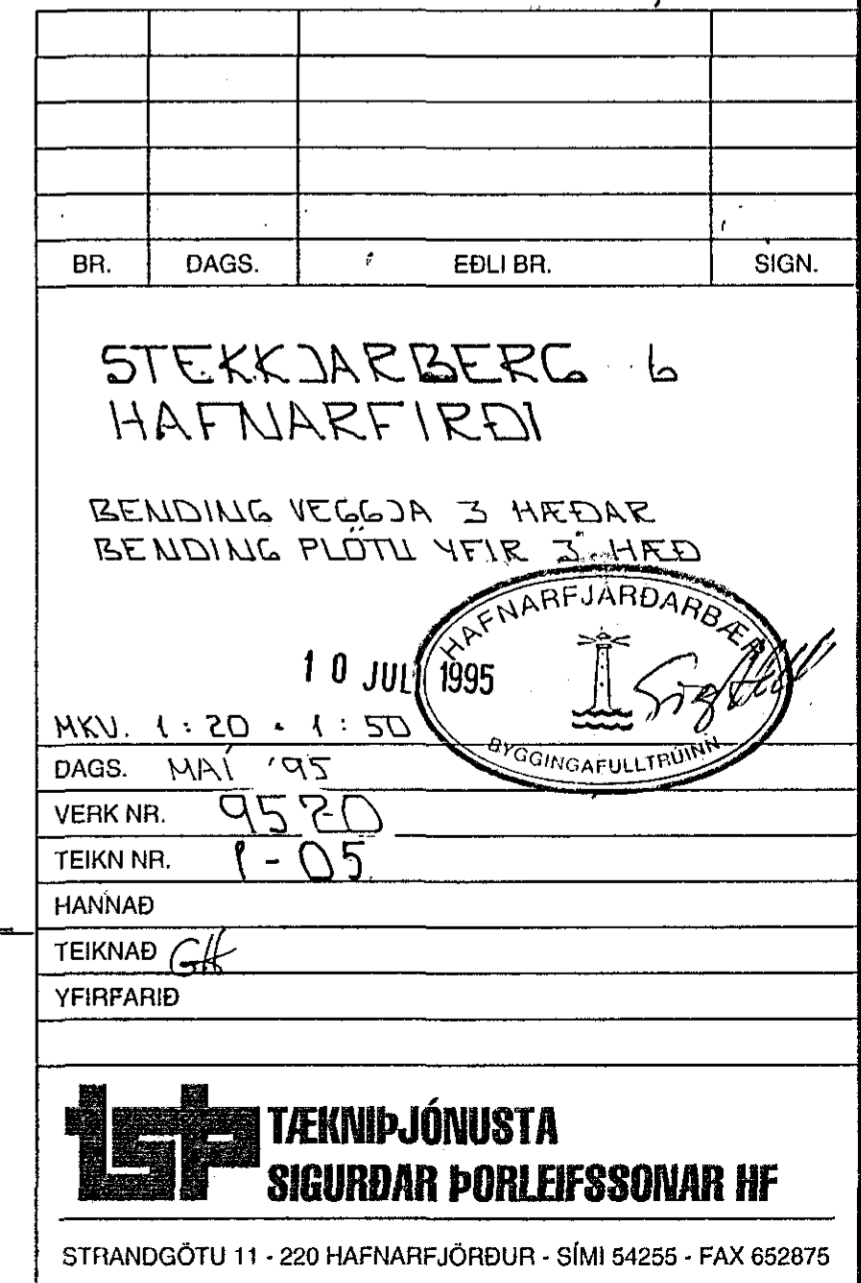 BR. DAGS. EÐLI BR. SIGN.
STEKKJARBERG 6
HAFNARFIRÐI
BENDING VEGGJA 3 HÆÐAR
BENDING PLÖTU YFIR 3. HÆÐ
HAFNARFJARÐARBÆR
10 JULI 1995
BYGGINGAFULLTRÚINN
MKV. 1:20 • 1:50
DAGS. MAÍ '95
VERK NR. 9520
TEIKN NR. 1-05
HANNAÐ
TEIKNAÐ GH
YFIRFARIÐ
tsþ
TÆKNIÞJÓNUSTA
SIGURÐAR ÞORLEIFSSONAR HF
STRANDGÖTU 11 - 220 HAFNARFJÖRÐUR - SÍMI 54255 - FAX 652875